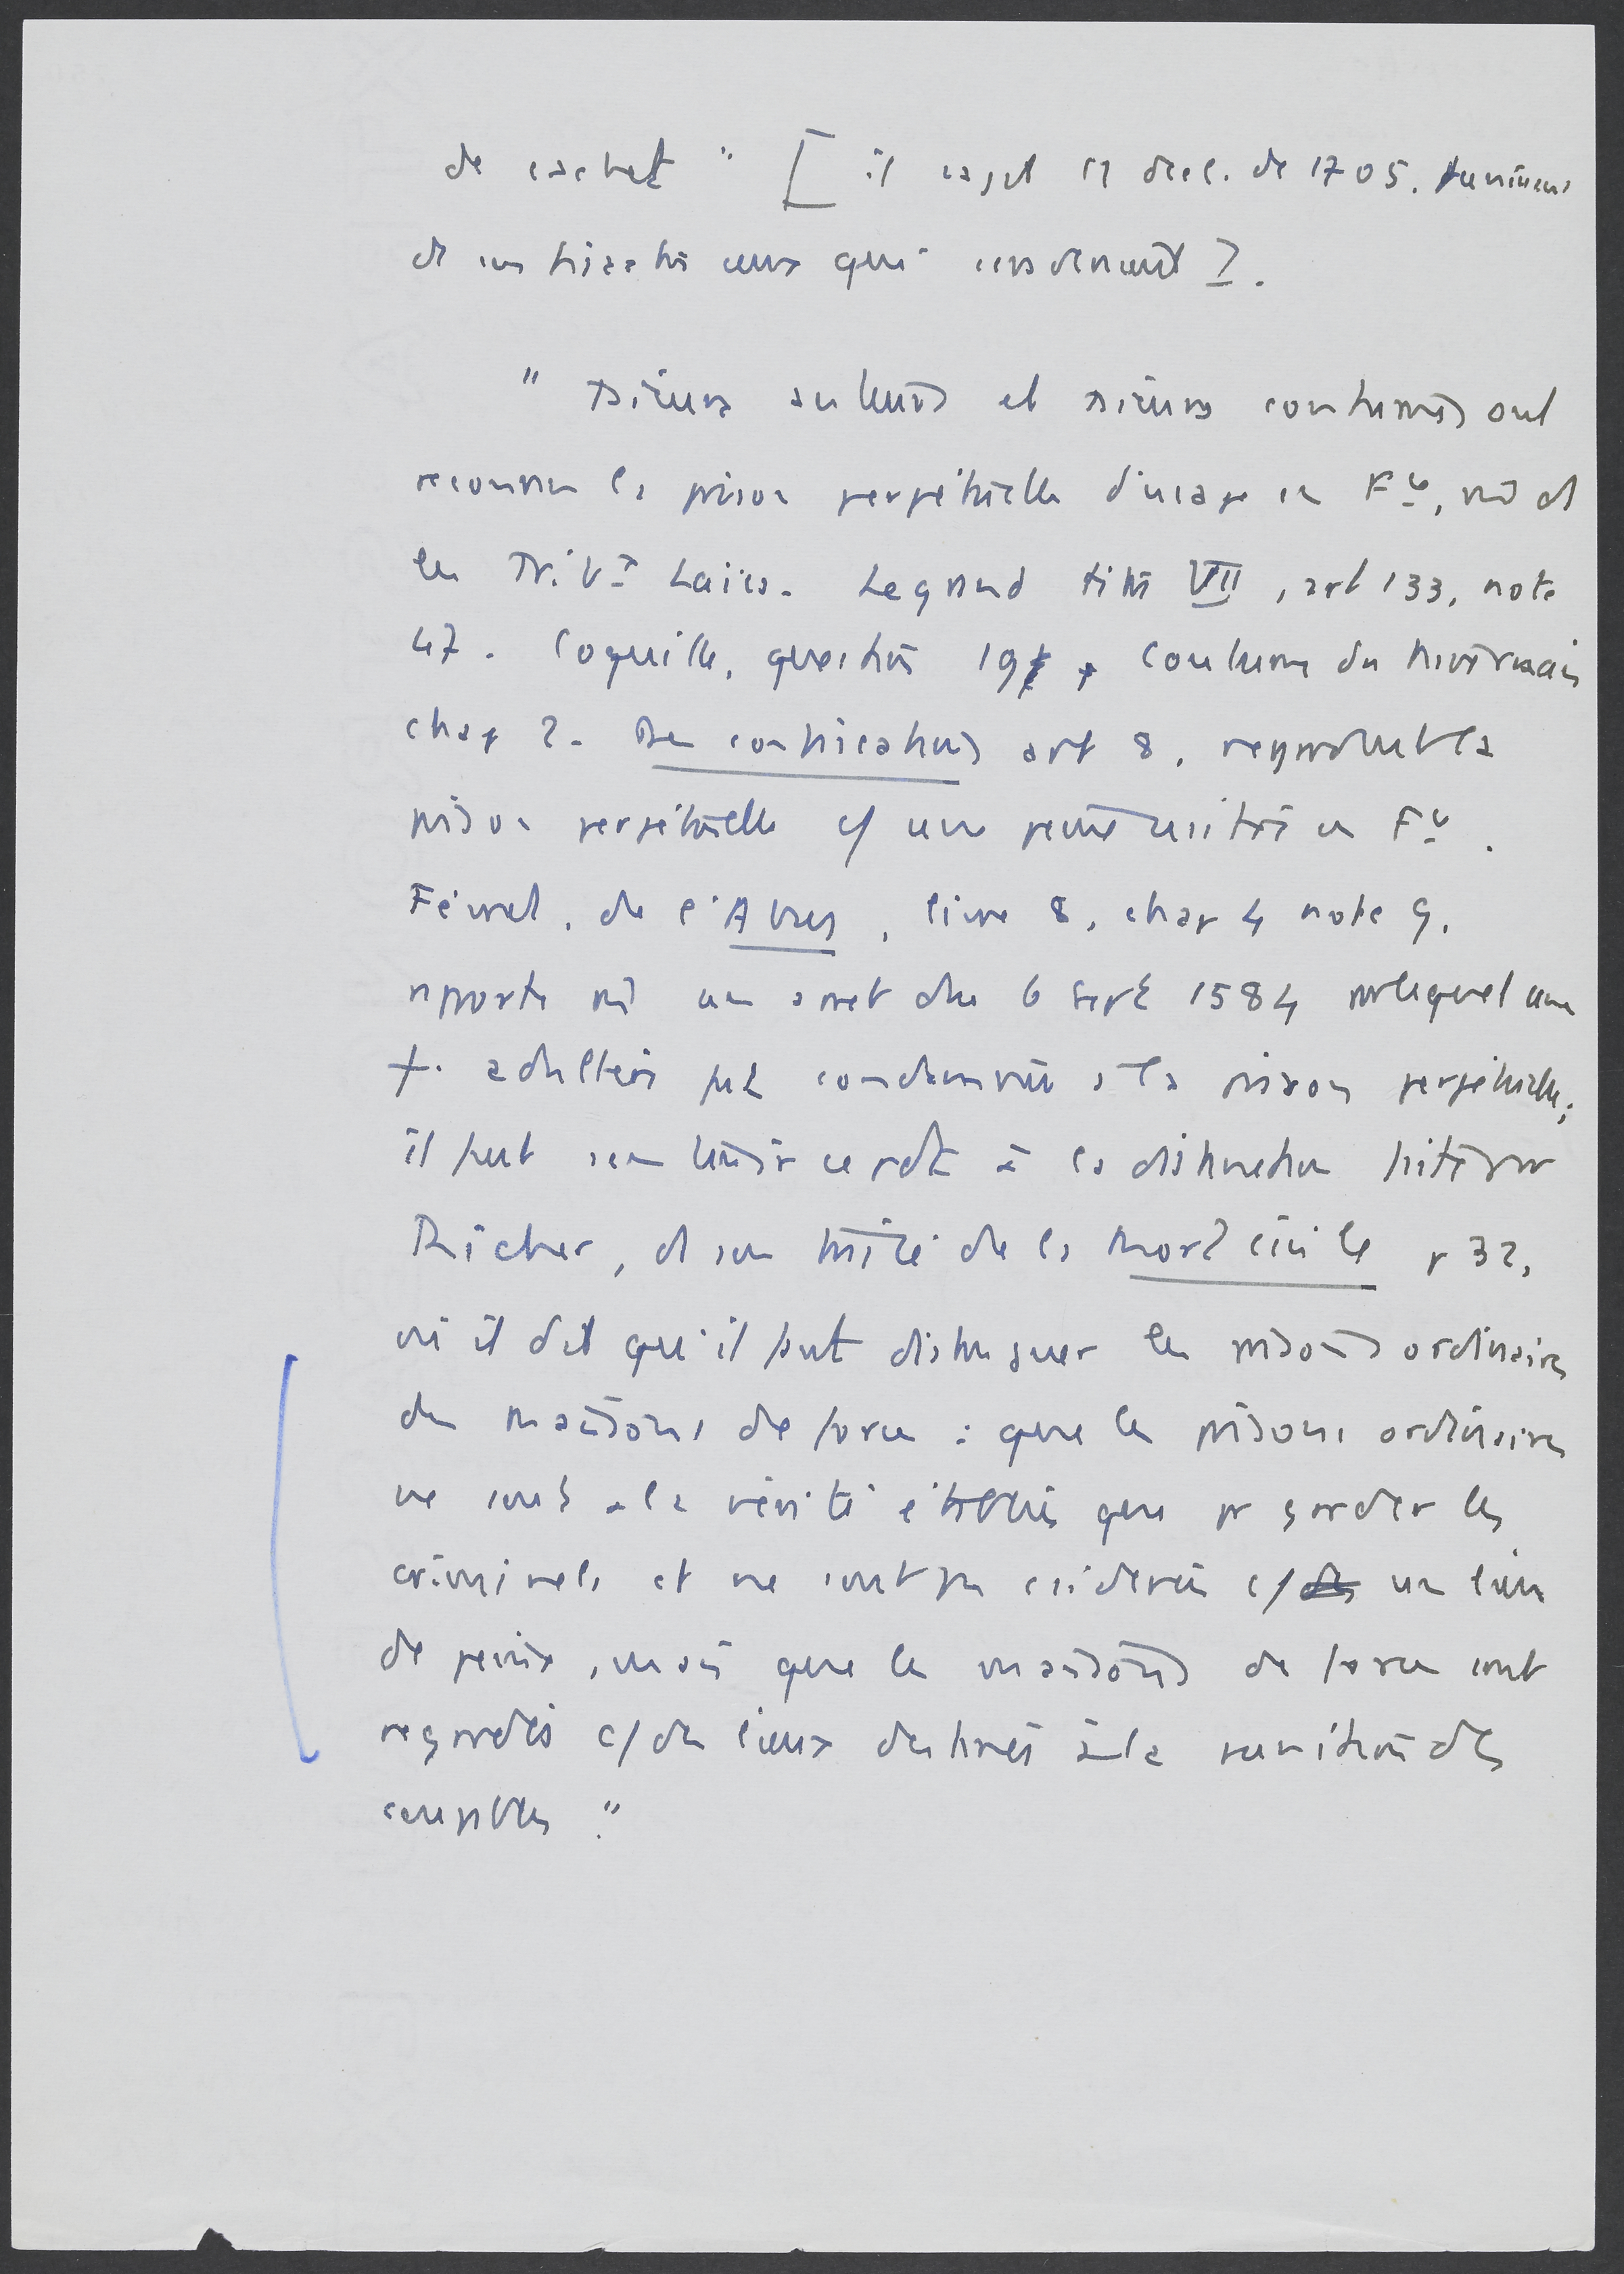 de cachet " [ il s'agit d1 décl. de 1705. punissant
de confiscation ceux qui
" Plusieurs auteurs et plusieurs coutumes ont
reconnu la prison perpétuelle d'usage en Fce, même ds
les Tribx Laïcs. Legrand titre VII, art 133, note
47. Coquille, question 19 , Coutume du Nivernais
chap 2. Des confiscations art 8, regardent la
prison perpétuelle c/ une peine usitée en Fce.
Févret, de l'Abus, livre 8, chap 4 note 9.
rapporte même un arrêt du 6 sept 1584 par lequel une
f. adultère fut condamnée à la prison perpétuelle;
il faut s'en tenir à cet égard à la distinction faite par
Richer, ds son traité de la Mort civile p 32,
où il dit qu'il faut distinguer les prisons ordinaires
des maisons de force : que les prisons ordinaires
ne sont à la vérité établies que pr garder les
criminels et ne sont pas csidérées c/ un lieu
de peine, mais que les maisons de force sont
regardées c/ des lieux destinés à la punition des
coupables."